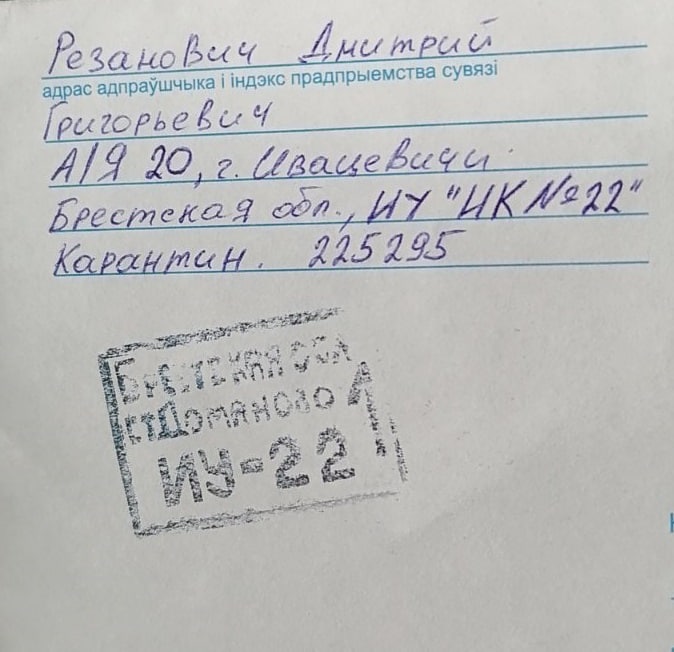 Резанович Дмитрий
адрас адпраўшчыка і індэкс прадпрыемства сувязі
Григорьевич
А/Я 20, г. Ивацевичи.
Брестская обл., ИУ "ИК №22"
Карантин. 225295
Брестская обл
ст Доманово
ИУ-22